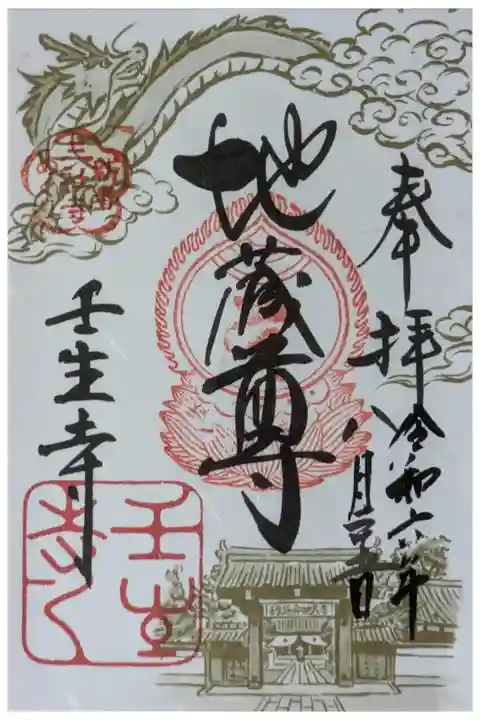 奉拝
令和六年
八月吉日
地蔵尊
壬生寺
壬生寺